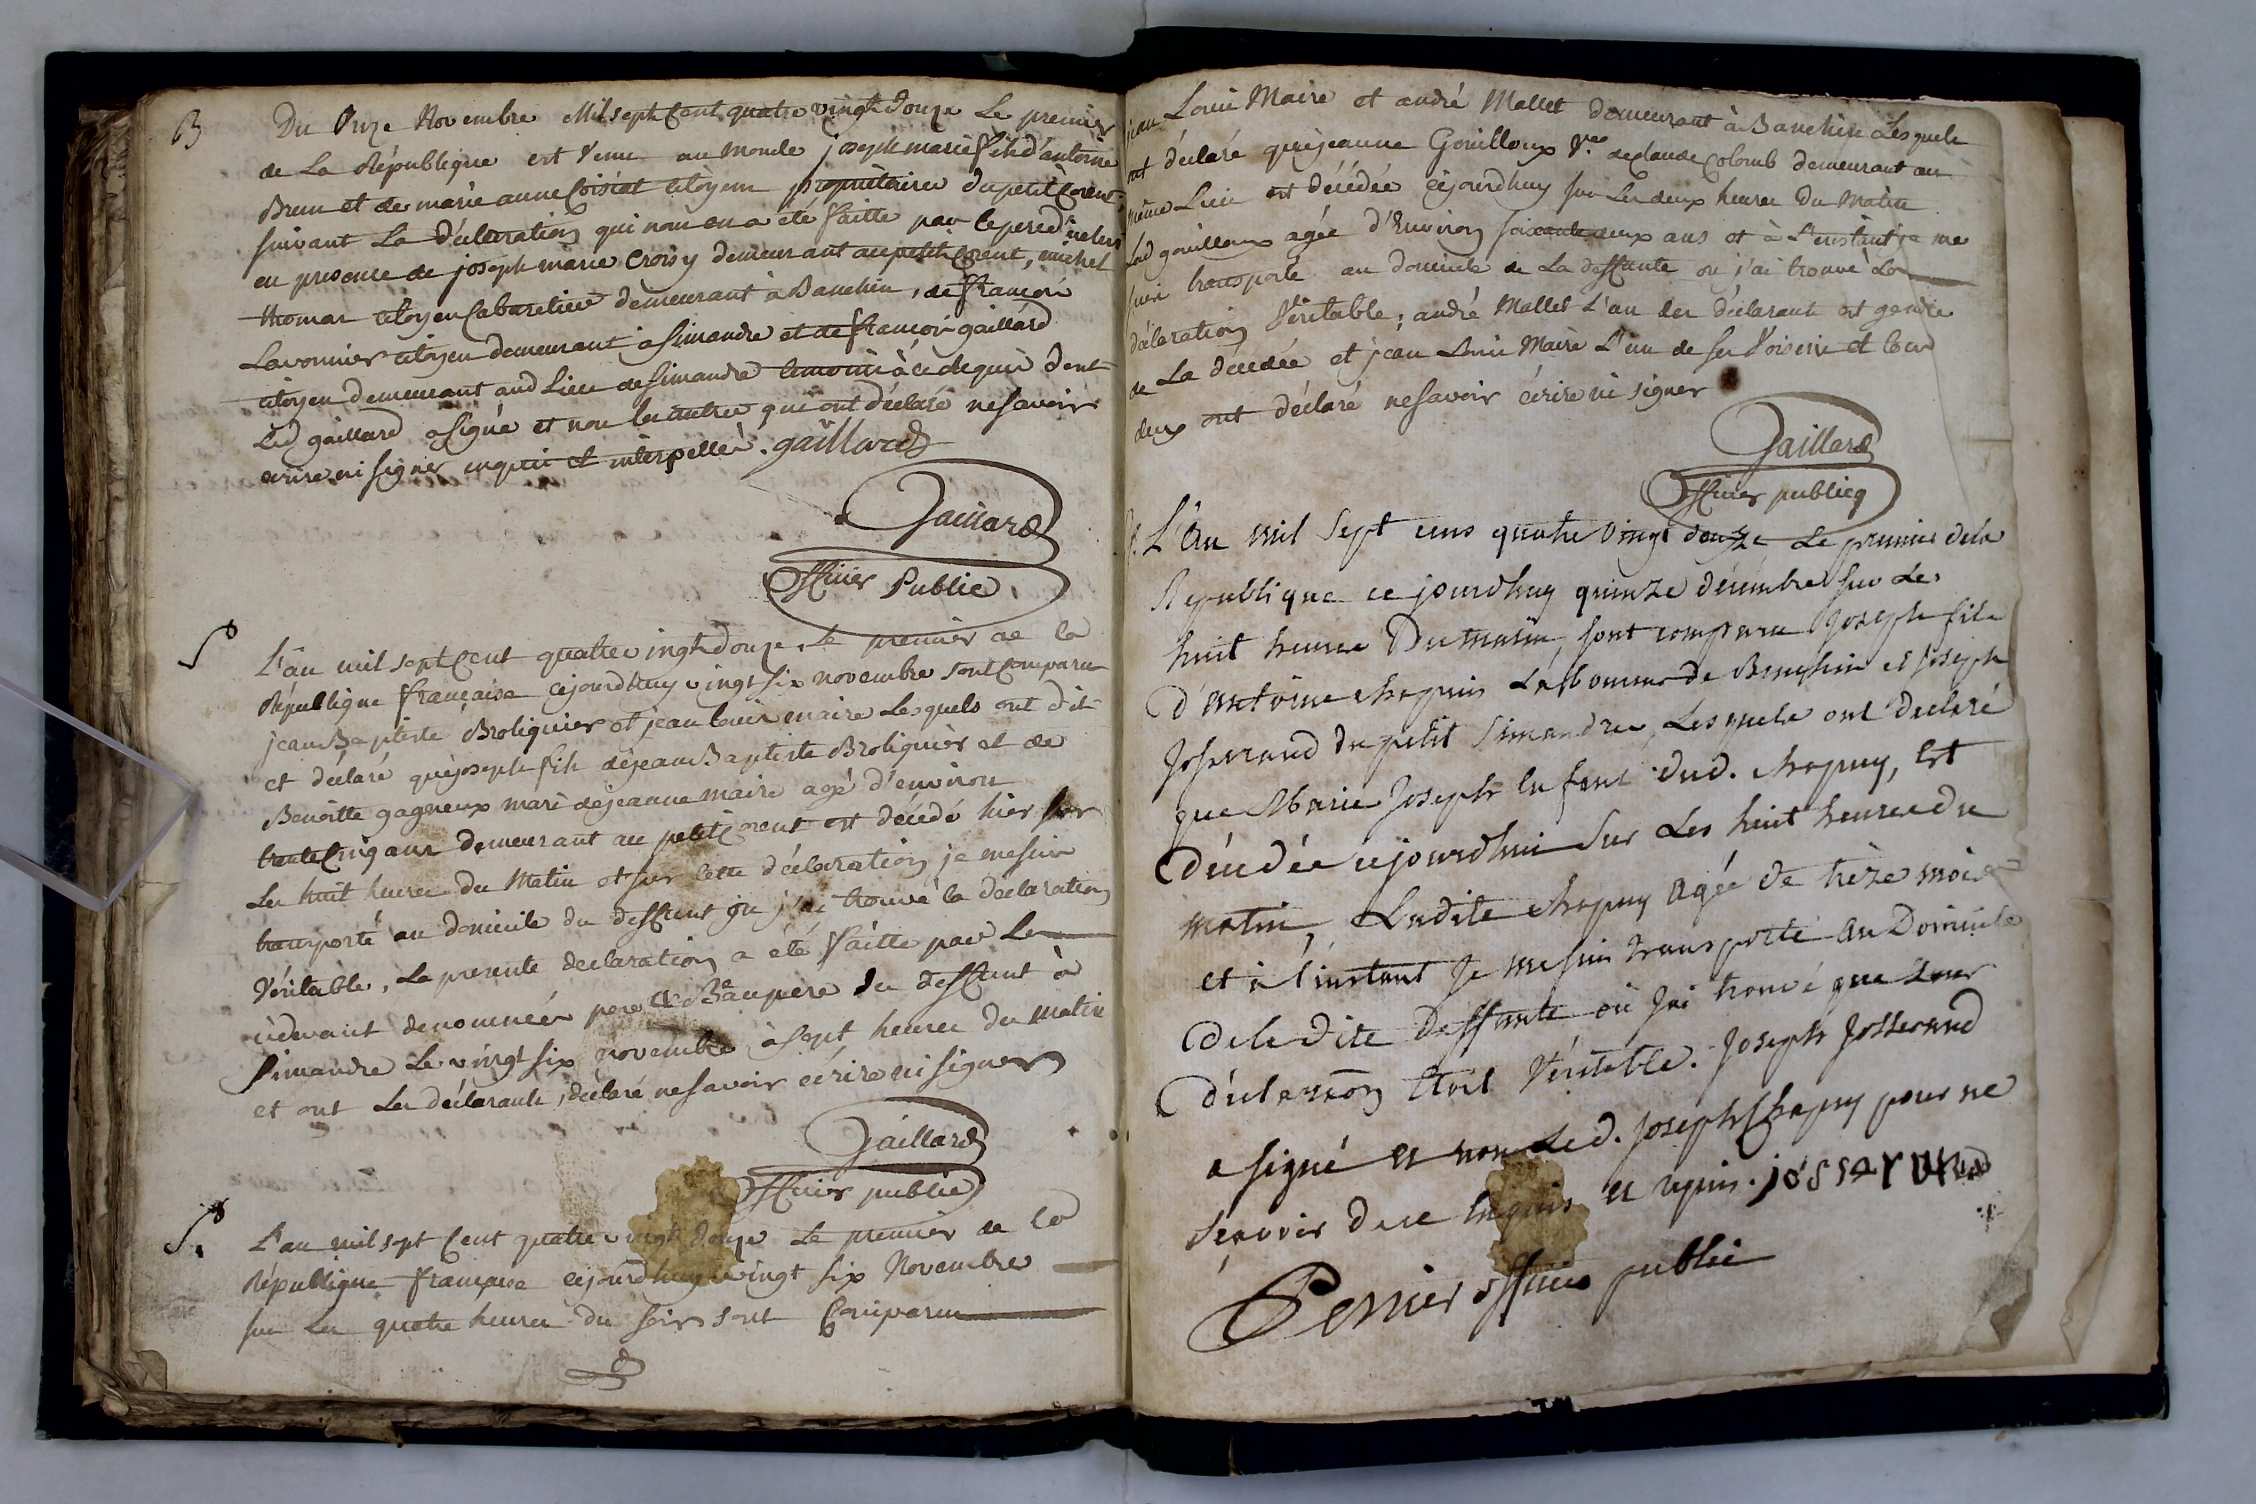 B
Du onze Novembre Mil sept Cent quatre vingt douze Le premier
de La République est venu au monde joseph marie fils d'antoine
Brun et de marie anne Coisiat citoyens propriétaires du petit Corent
suivant La déclaration qui nous en a été faitte par le pere
en presence de joseph marie Croisy demeurant au petit Corent, michel
thomas citoyen Cabaretier demeurant à Banchin, de françois
Lavonnier citoyen demeurant a Simandre et de françois gaillard
citoyen demeurant aud Lieu de Simandre temoins à ce requis dont
Led gaillard a signé et non les autres qui ont déclaré ne savoir
écrire ni signer enquis et interpellés. gaillard
Gaillard
officier Public
S
L'an mil sept Cent quatre vingt douze, Le premier de la
République française cejourdhuy vingt six novembre sont Comparu
jean Baptiste Broliquier et jean louis maire Lesquels ont dit
et déclaré que joseph fils de jean Baptiste Broliquier et de
Benoitte gagneux mari de jeanne maire agé d'environ
trente Cinq ans demeurant au petit Corent est décédé hier sur
Les huit heures du Matin et sur cette déclaration je me suis
transporté au domicile du deffunt ou j'ai trouvé la declaration
Véritable, La presente declaration a été faitte par Les
cidevant denommés pere et Beaupère du deffunt à
Simandre Le vingt six novembre à sept heures du matin
et ont Les déclarants, déclaré ne savoir écrire ni signer
Gaillard
officier public
S.
L'an mil sept Cent quatre vingt douze Le premier de la
République française cejourdhuy vingt six Novembre
sur Les quatre heures du soir sont Comparu
jean Louis Maire et andré Mallet demeurant à Banchin Lesquels
ont déclaré que jeanne Gouilloux Vve de claude Colomb demeurant au
même Lieu est décédée cejourdhuy sur Les deux heures du Matin
Lad gouilloux agée d'Environ soixante deux ans et à L'instant je me
suis transporté au domicile de La deffunte ou j'ai trouvé La
déclaration Véritable; andré Mallet L'un des déclarants est gendre
de La décédée et jean Louis Maire L'un de ses Voisins et tous
deux ont déclaré ne savoir écrire ni signer
Gaillard
officier publicq
L'an mil sept cens quatre vingt douze Le premier dela
Republique ce jourdhuy quinze décembre sur Les
huit heures Du matin, sont comparu Joseph fils
d'antoine chapuis Laboureur de Banchin et Joseph
Josserand du petit Simandre, Lesquels ont declaré
que Marie Joseph Enfant dud. chapuy, Est
décédée cejourdhui sur Les huit heures du
matin, Ladite chapuy agée de treze mois
et à l'instant Je me suis transporté au Domicile
de la dite Deffunte où J'ai trouvé que Leur
déclaraon Etoit Véritable. Joseph Josserand
a signé et non Led. Joseph Chapuy pour ne
sçavoir de ce Enquis et requis. jossarand
Perrier officier public